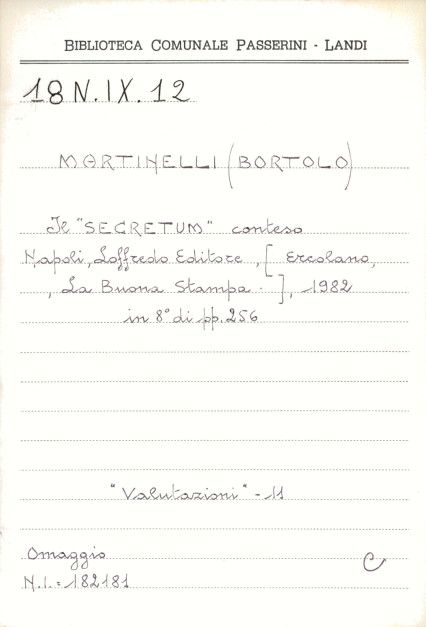 BIBLIOTECA COMUNALE PASSERINI - LANDI
18 N.IX.12
MARTINELLI (BORTOLO)
Il "SECRETUM" conteso
Napoli, Loffredo Editore, [Ercolano,
, La Buona Stampa.], 1982
in 8° di pp. 256
"Valutazioni" - 11
Omaggio C
N.I.= 182181